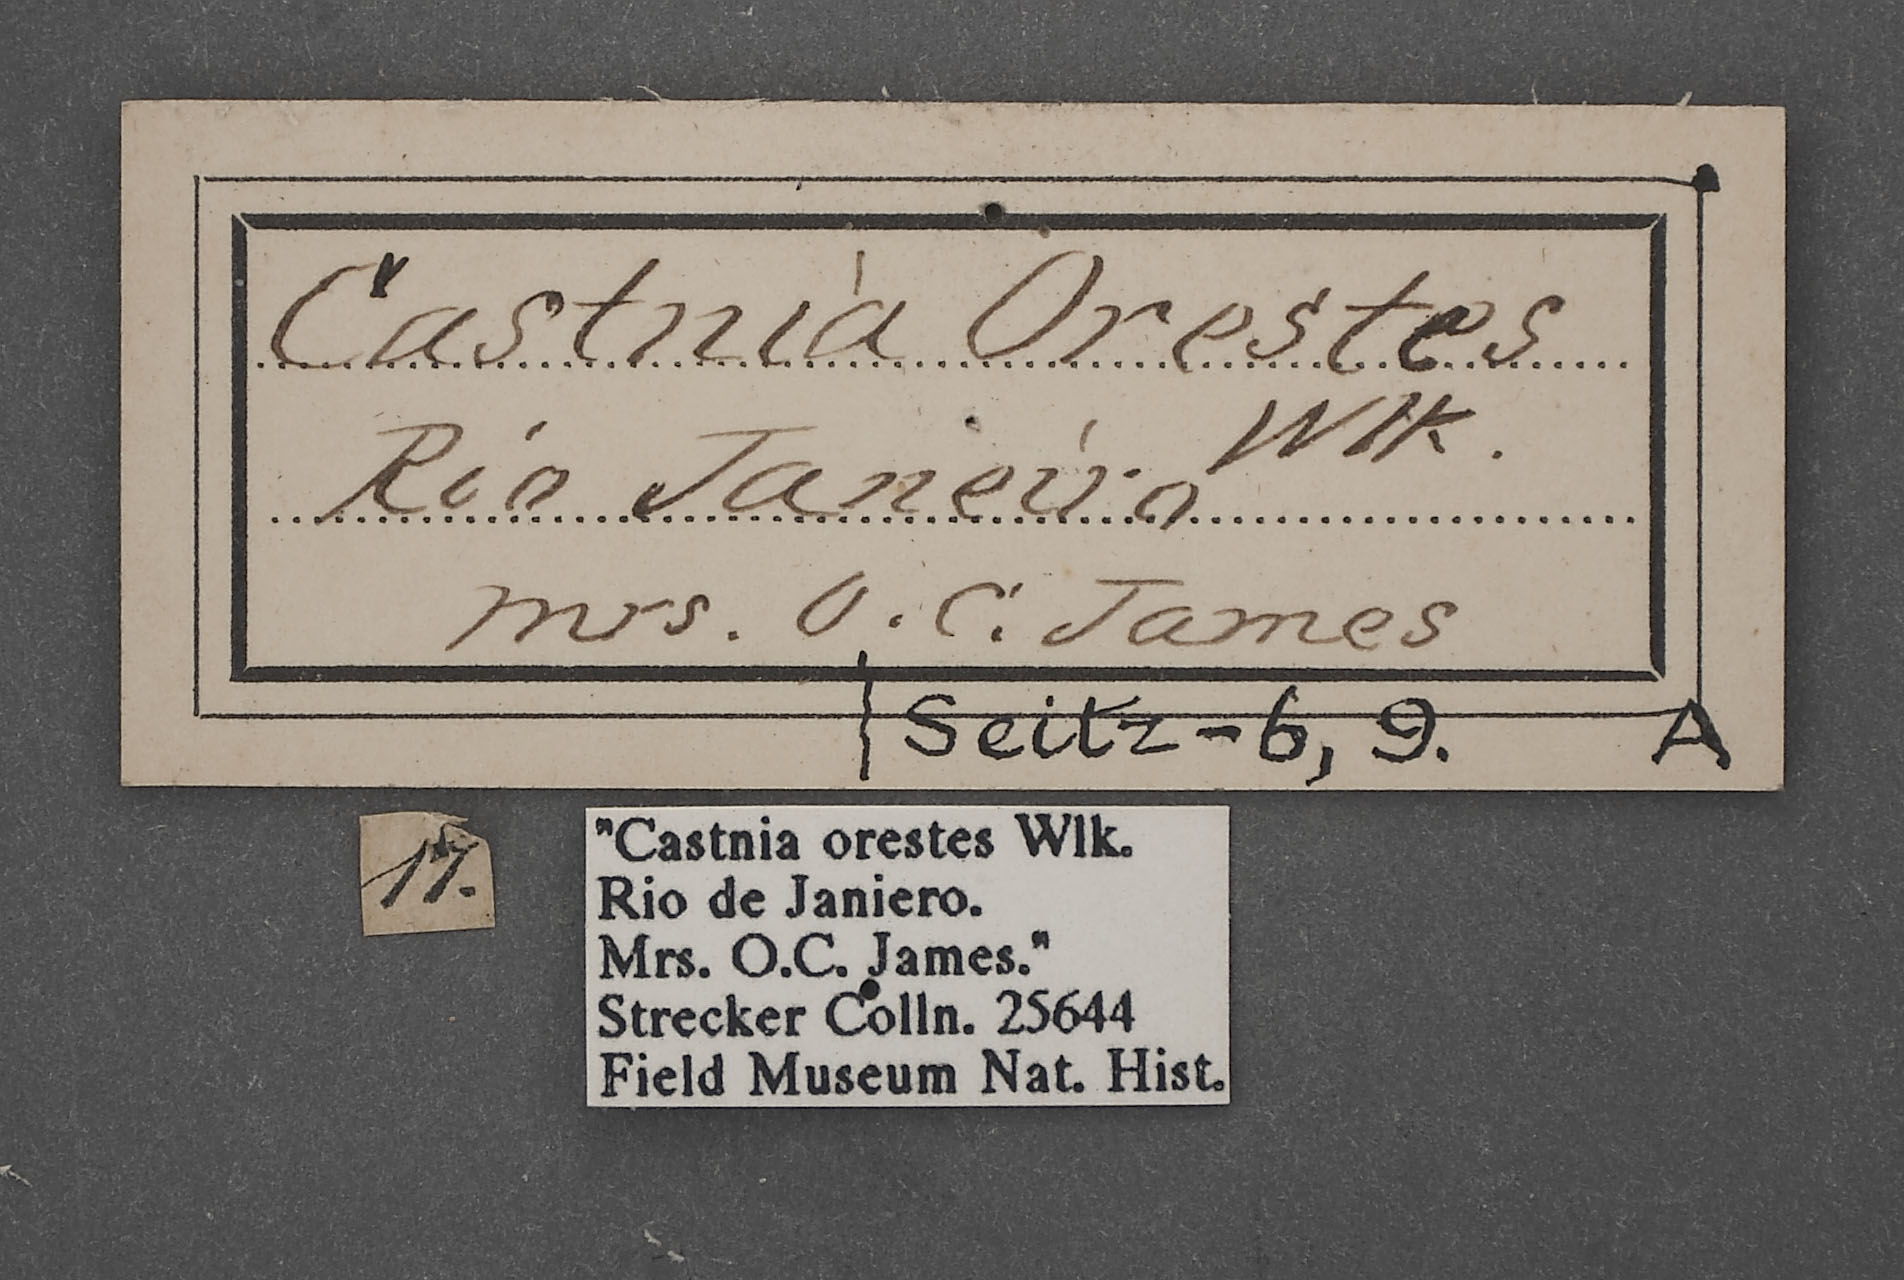 Castnia Orestes
Wlk.
Rio Janeiro
Mrs. O. C. James
Seitz-6, 9. A
17.
"Castnia orestes Wlk.
Rio de Janiero.
Mrs. O.C. James."
Strecker Colln. 25644
Field Museum Nat. Hist.